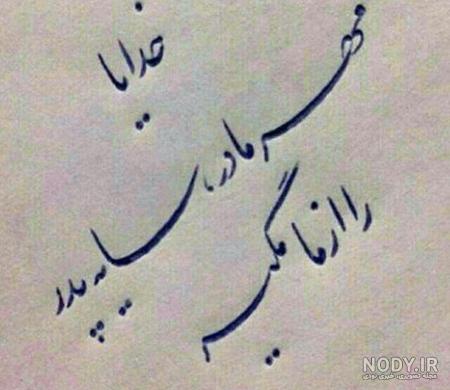 خدایا
مهر مادر، سایه پدر
را از ما مگیر
NODY.IR